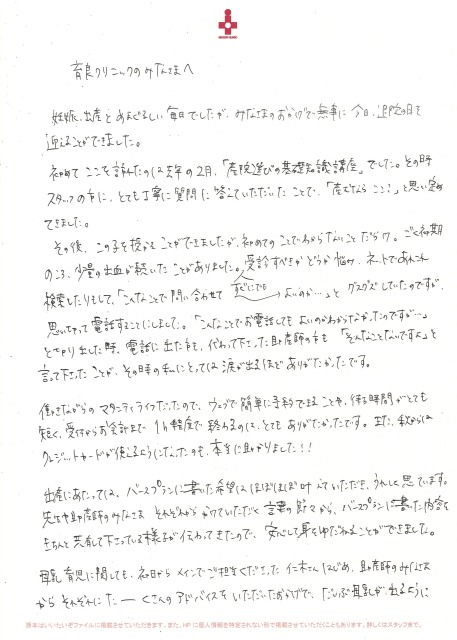 育良クリニックのみなさまへ
妊娠、出産とあわただしい毎日でしたが、みなさまのおかげで無事に今日、退院の日を
迎えることができました。
初めてここを訪れたのは去年の2月、「産院選びの基礎知識講座」でした。その時
スタッフの方に、とても丁寧に質問に答えていただいたことで、「産むならここ!」と思い定め
てきました。
その後、この子を授かることができましたが、初めてのことでわからないことだらけ。ごく初期
のころ、少量の出血が続いたことがありました。受診すべきかどうか悩み、ネットであれこれ
検索したりもして、「こんなことで問い合わせてよいのか…」とグズグズしていたのですが、
思いきって電話することにしました。「こんなことでお電話してもよいのかわからなかったのですが…」
と切り出した時、電話に出た方も、代わって下さった助産師の方も「そんなことないですよ」と
言って下さったことが、その時の私にとっては涙が出るほどありがたかったです。
働きながらのマタニティライフだったので、ウェブで簡単に予約できることや、待ち時間がとても
短く、受付からお会計まで1h程度で終わるのは、とてもありがたかったです。また、秋からは
クレジットカードが使えるようになったのも、本当に助かりました!!
出産にあたっては、バースプランに書いた希望はほぼほぼ叶えていただき、うれしく思っています。
先生や助産師のみなさま それぞれからかけていただく言葉の節々から、バースプランに書いた内容を
きちんと共有して下さっている様子が伝わってきたので、安心して身をゆだねることができました。
母乳育児に関しても、初日からメインでご担当くださった仁木さんはじめ、助産師のみなさま
からそれぞれにたーくさんのアドバイスをいただいたおかげで、だいぶ母乳が出るように
原本はいいたいぞファイルに掲載させていただきます。また、HPに個人情報を特定されない形で掲載させていただくこともあります。詳しくはスタッフまで。